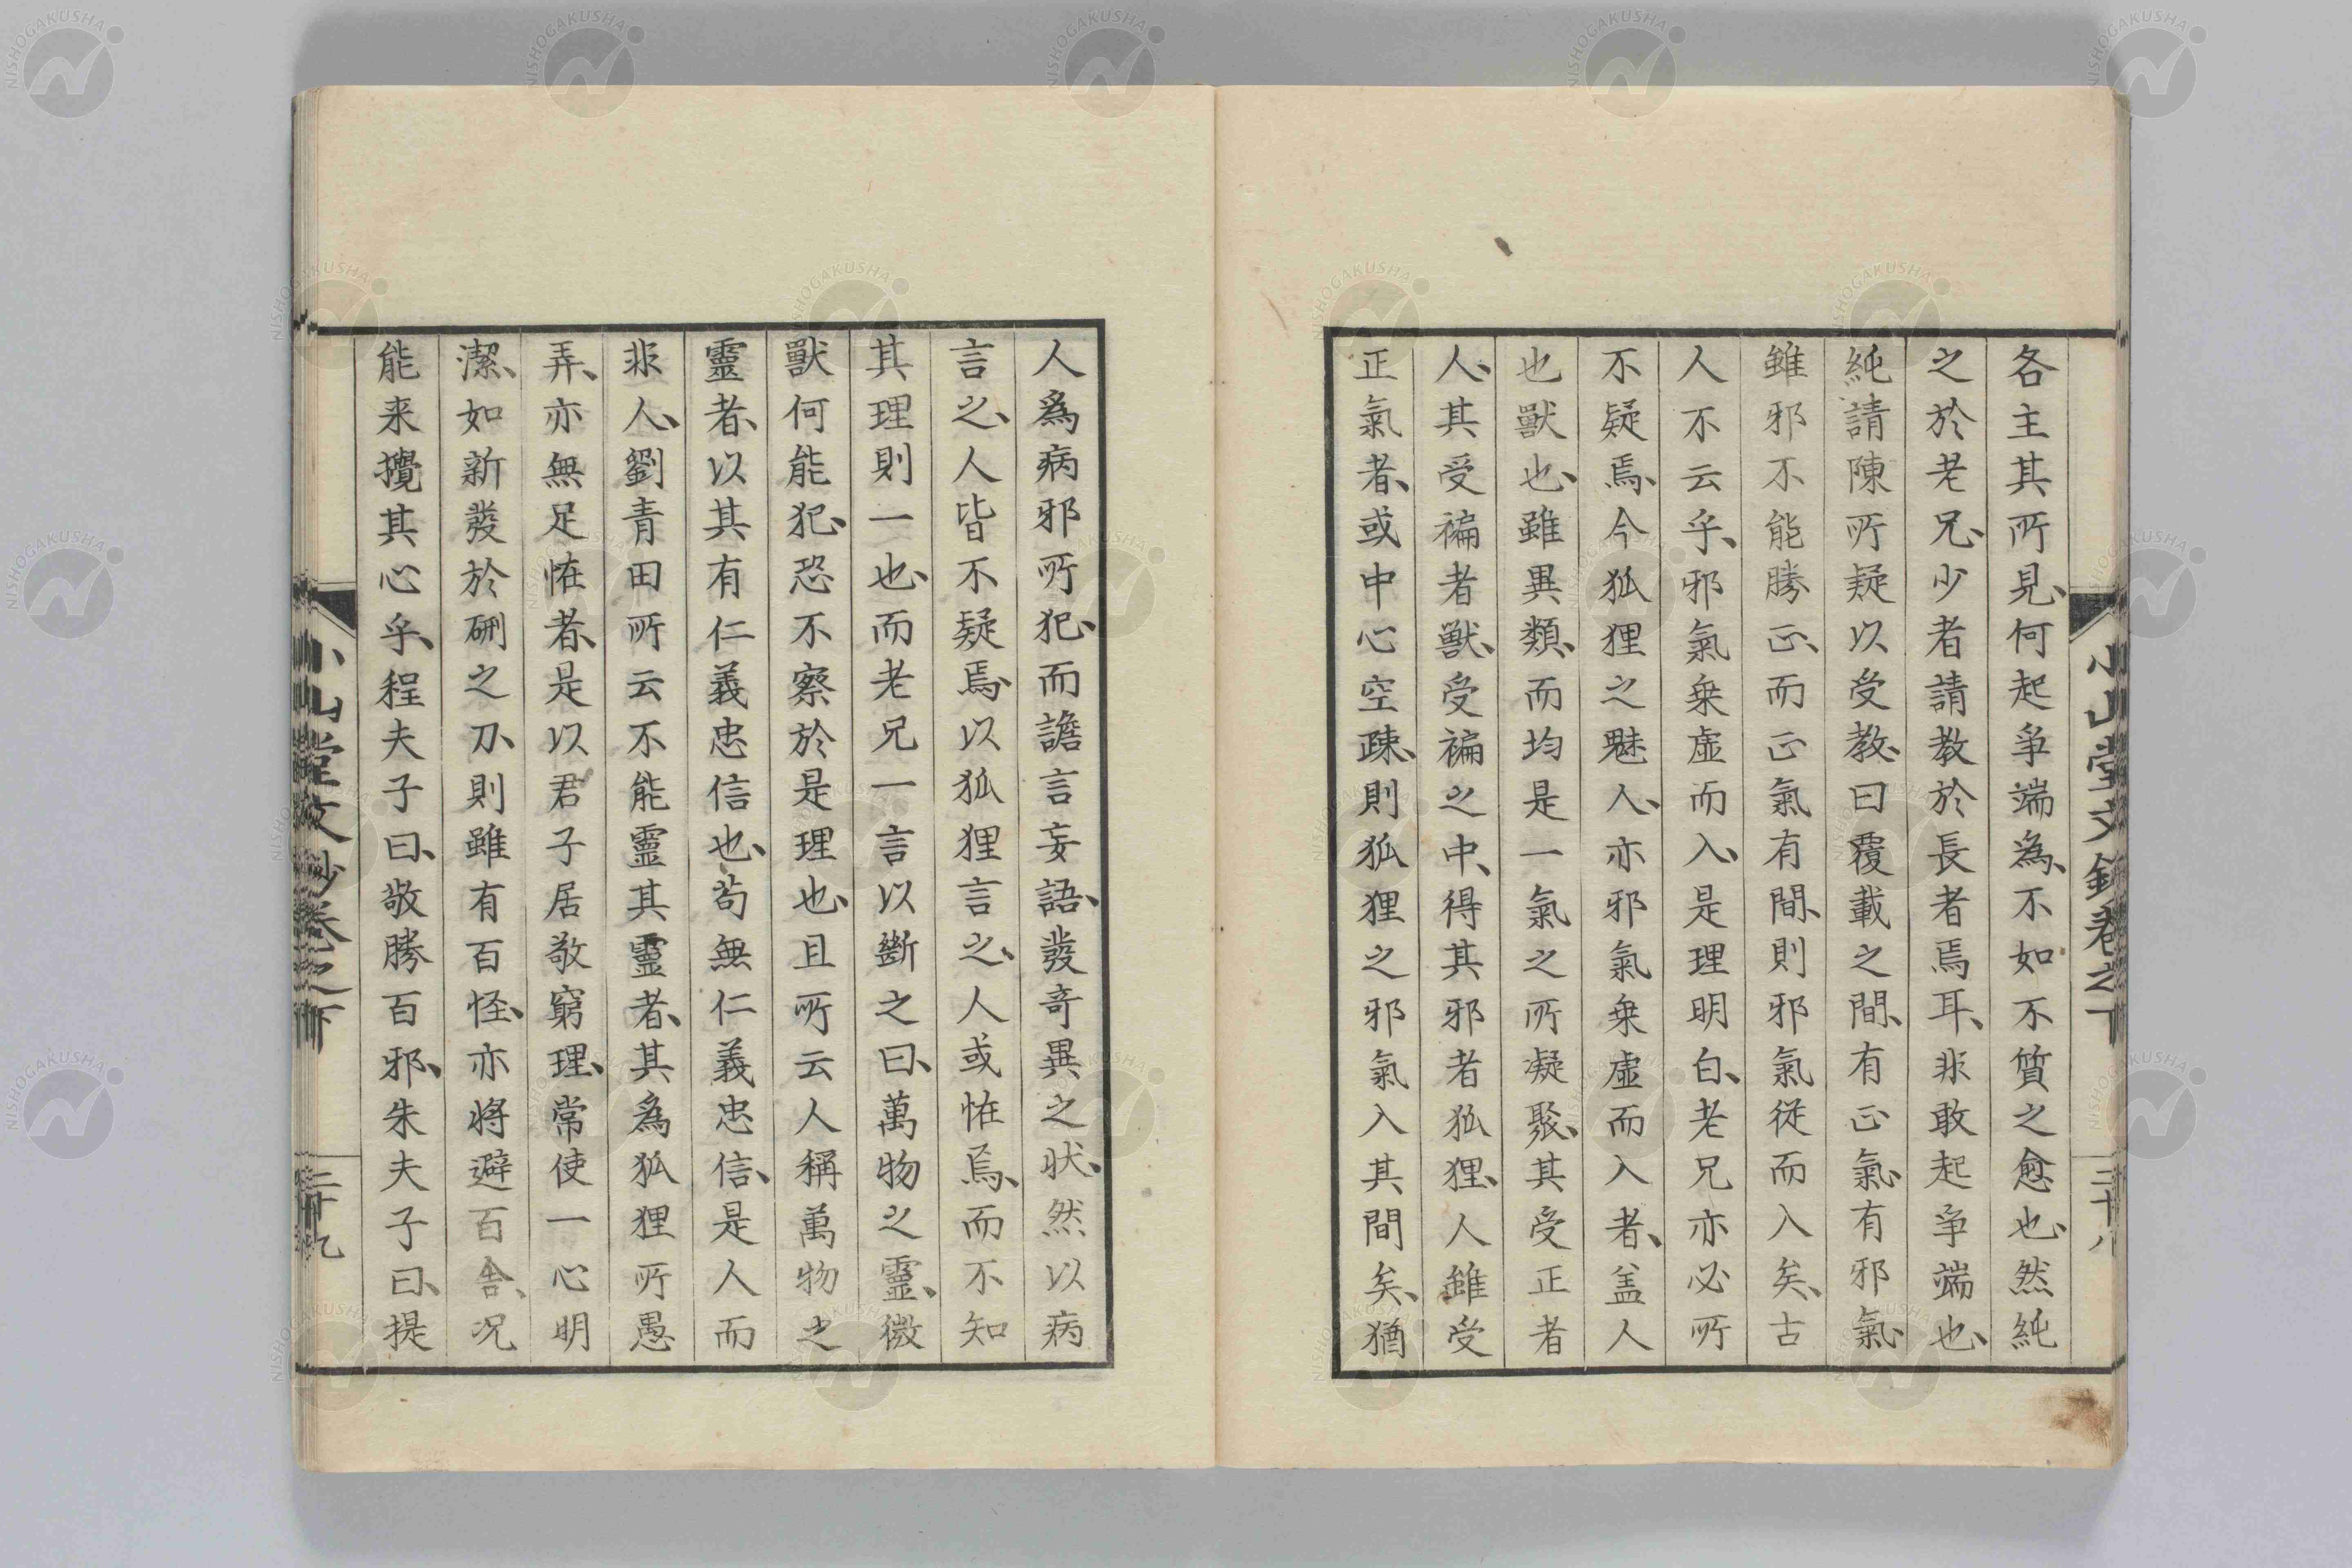 小山堂文鈔卷之下
三十八
各主其所見、何起爭端爲、不如不質之愈也、然純
之於老兄、少者請教於長者焉耳、非敢起爭端也、
純請陳所疑以受教、曰覆載之間、有正氣、有邪氣、
雖邪不能勝正、而正氣有間、則邪氣從而入矣、古
人不云乎、邪氣乗虛而入、是理明白、老兄亦必所
不疑焉、今狐狸之魅人、亦邪氣乗虛而入者、盖人
也獸也、雖異類、而均是一氣之所凝聚、其受正者
人、其受褊者獸、受褊之中、得其邪者狐狸、人雖受
正氣者、或中心空疎、則狐狸之邪氣入其間矣、猶
人爲病邪所犯、而譫言妄語、發奇異之狀、然以病
言之、人皆不疑焉、以狐狸言之、人或恠焉、而不知
其理則一也、而老兄一言以斷之曰、萬物之靈、微
獸何能犯、恐不察於是理也、且所云人稱萬物之
靈者、以其有仁義忠信也、苟無仁義忠信、是人而
非人、劉青田所云不能靈其靈者、其爲狐狸所愚
弄、亦無足恠者、是以君子居敬窮理、常使一心明
潔、如新發於硎之刀、則雖有百怪、亦將避百舎、况
能来攪其心乎、程夫子曰、敬勝百邪、朱夫子曰、提
小山堂文鈔卷之下
三十九
NISHOGAKUSHA